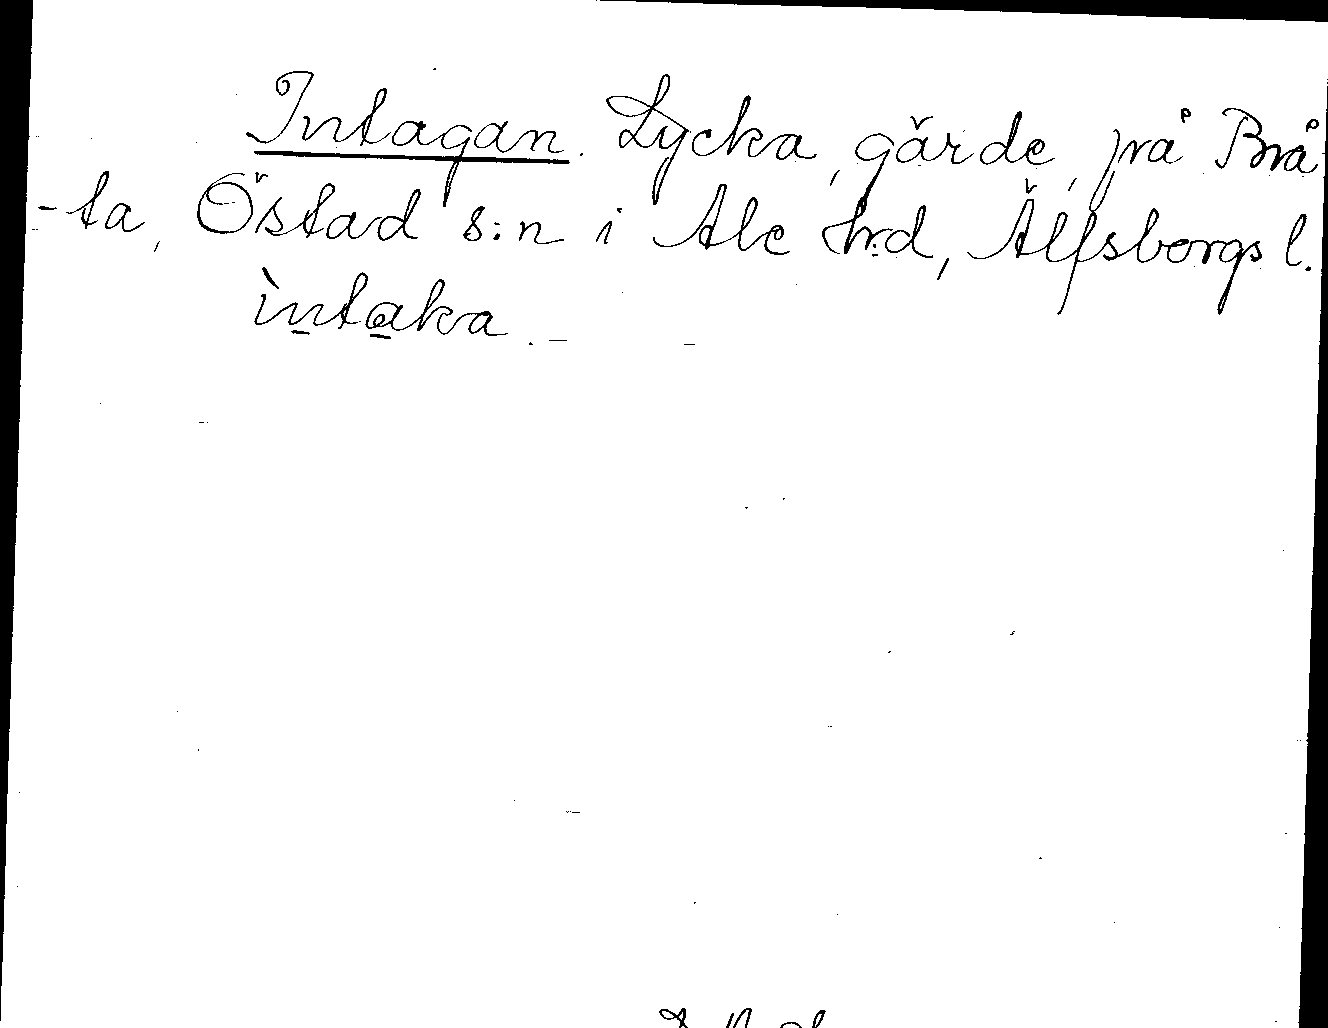 Intagan. Lycka, gärde, på Brå
-ta, Östad s:n i Ale h:d, Älfsborgs l.
ìntaka.